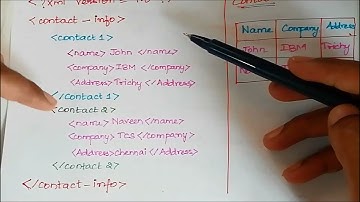 <?xml version
<contact-info>
<contact1>
<name> John </name>
<company> IBM </company>
<Address> Trichy </Address>
</contact1>
<contact2>
<name> Naveen </name>
<company> TCS </company>
<Address> chennai </Address>
</contact2>
</contact-info>
Name Company Address
John IBM Trichy